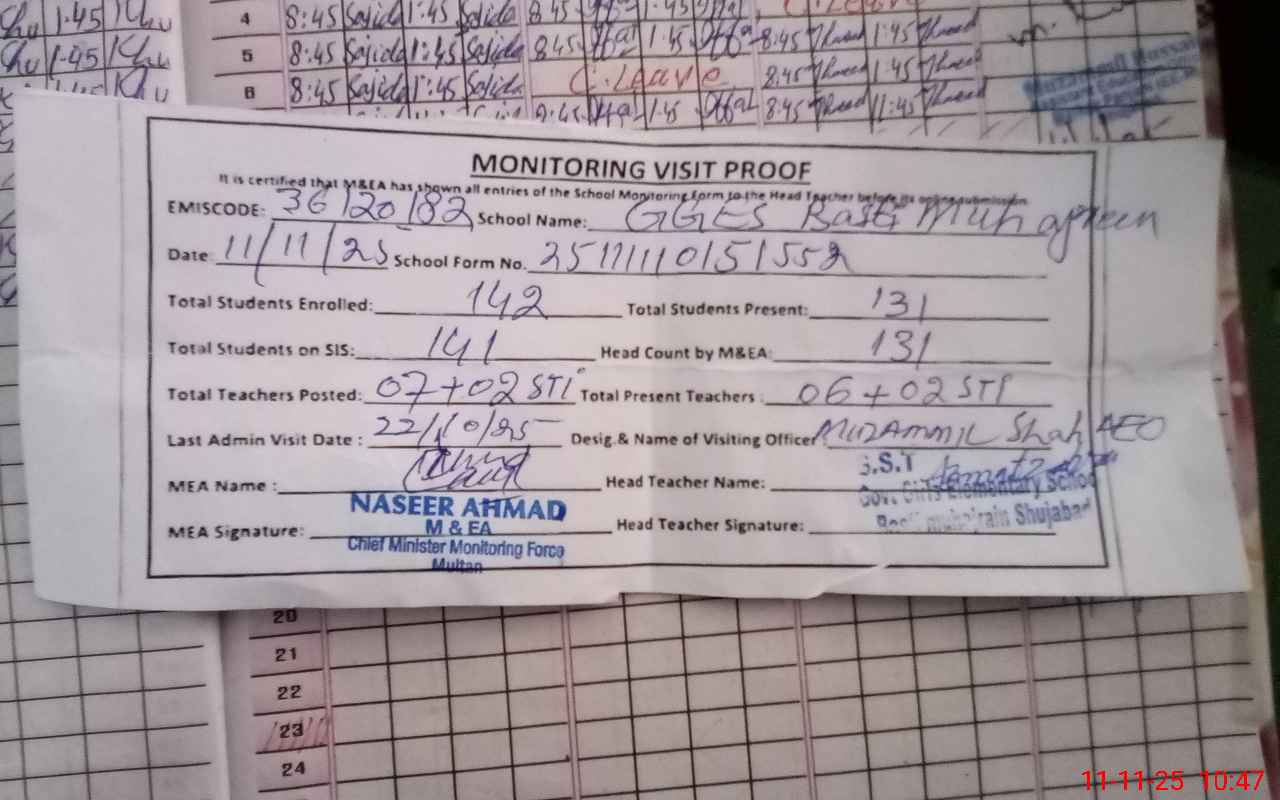 1.45
4 8:45 Sajida 1:45 Sajida 8.45 1.45 C.Leave
1.45 Khu
5 8:45 Sajida 1:45 Sajida 8.45 1.45 8:45 1:45
6 8:45 Sajida 1:45 Sajida C.Leave 8:45 1:45
8:45 1.45 8:45 1:45
MONITORING VISIT PROOF
It is certified that M&EA has shown all entries of the School Monitoring Form to the Head Teacher before its online submission
EMISCODE: 36120182 School Name: GGES Basti Muhajreen
Date: 11/11/25 School Form No. 25111110151552
Total Students Enrolled: 142 Total Students Present: 131
Total Students on SIS: 141 Head Count by M&EA: 131
Total Teachers Posted: 07+02 STI Total Present Teachers : 06+02 STI
Last Admin Visit Date : 22/10/25 Desig.& Name of Visiting Officer Muzammil Shah AEO
MEA Name : Head Teacher Name: S.S.T
Govt Girls Elementary School
MEA Signature: NASEER AHMAD Head Teacher Signature: Basti muhajrain Shujabad
M & EA
Chief Minister Monitoring Force
Multan
20
21
22
23
24
11-11-25 10:47